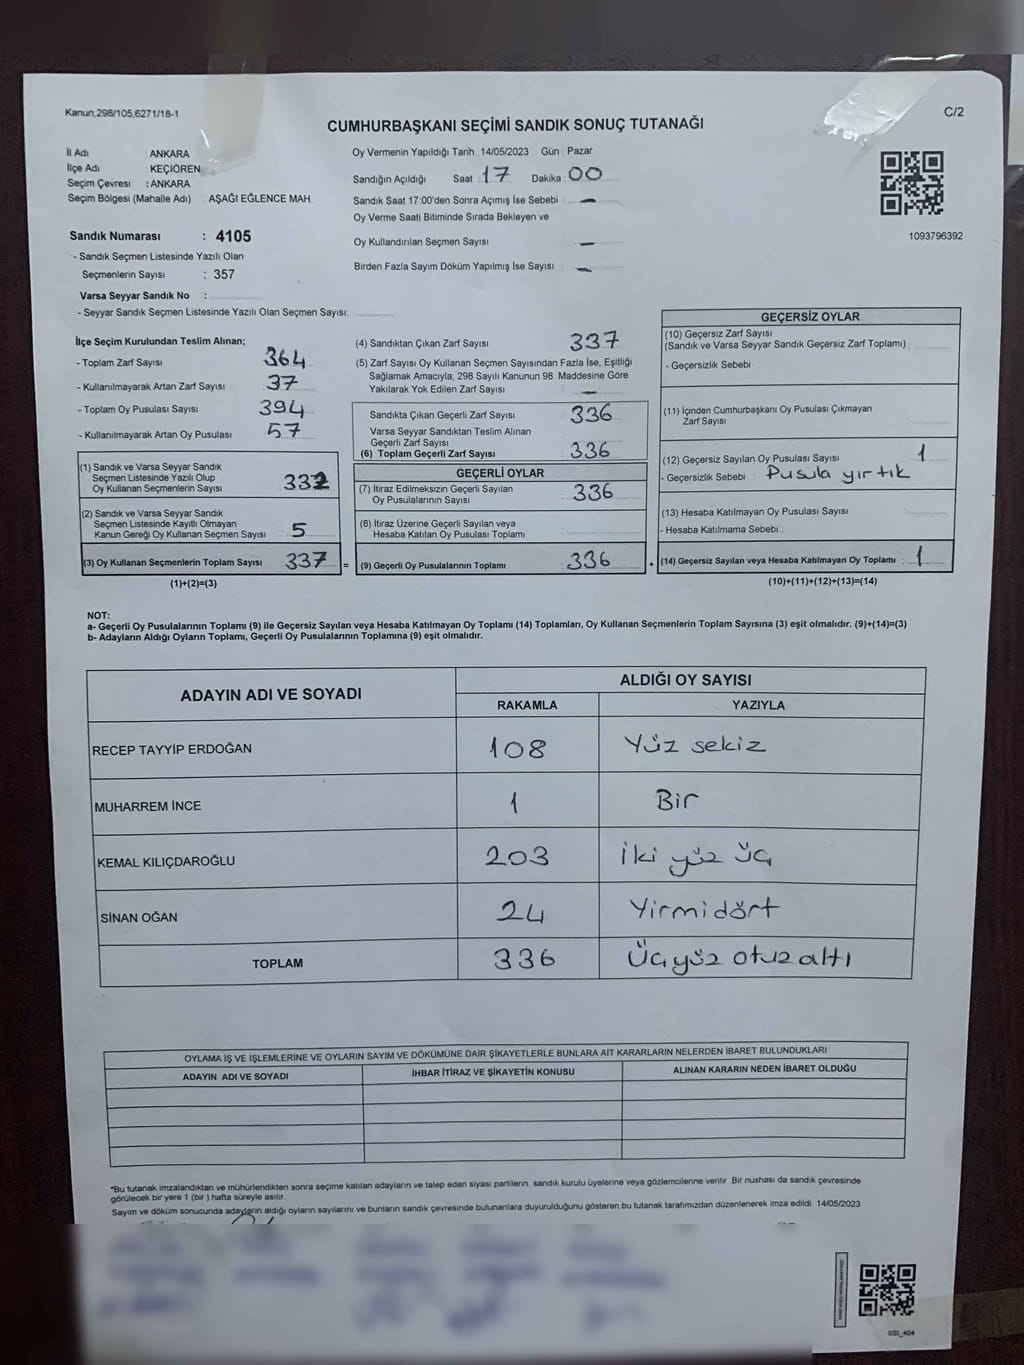 Kanun,298/105,6271/18-1
C/2
CUMHURBAŞKANI SEÇİMİ SANDIK SONUÇ TUTANAĞI
İl Adı : ANKARA
İlçe Adı : KEÇİÖREN
Seçim Çevresi : ANKARA
Seçim Bölgesi (Mahalle Adı) : AŞAĞI EĞLENCE MAH.
Sandık Numarası : 4105
- Sandık Seçmen Listesinde Yazılı Olan
Seçmenlerin Sayısı : 357
Varsa Seyyar Sandık No :
- Seyyar Sandık Seçmen Listesinde Yazılı Olan Seçmen Sayısı:
Oy Vermenin Yapıldığı Tarih :14/05/2023 Gün : Pazar
Sandığın Açıldığı Saat : 17 Dakika : 00
Sandık Saat 17:00'den Sonra Açımış İse Sebebi : —
Oy Verme Saati Bitiminde Sırada Bekleyen ve
Oy Kullandırılan Seçmen Sayısı —
Birden Fazla Sayım Döküm Yapılmış İse Sayısı : —
1093796392
İlçe Seçim Kurulundan Teslim Alınan;
- Toplam Zarf Sayısı : 364
- Kullanılmayarak Artan Zarf Sayısı : 37
- Toplam Oy Pusulası Sayısı : 394
- Kullanılmayarak Artan Oy Pusulası : 57
(1) Sandık ve Varsa Seyyar Sandık
Seçmen Listesinde Yazılı Olup
Oy Kullanan Seçmenlerin Sayısı : 332
(2) Sandık ve Varsa Seyyar Sandık
Seçmen Listesinde Kayıtlı Olmayan
Kanun Gereği Oy Kullanan Seçmen Sayısı : 5
(3) Oy Kullanan Seçmenlerin Toplam Sayısı : 337
(1)+(2)=(3)
(4) Sandıktan Çıkan Zarf Sayısı : 337
(5) Zarf Sayısı Oy Kullanan Seçmen Sayısından Fazla İse, Eşitliği
Sağlamak Amacıyla, 298 Sayılı Kanunun 98. Maddesine Göre
Yakılarak Yok Edilen Zarf Sayısı : —
Sandıkta Çıkan Geçerli Zarf Sayısı : 336
Varsa Seyyar Sandıktan Teslim Alınan
Geçerli Zarf Sayısı
(6) Toplam Geçerli Zarf Sayısı : 336
GEÇERLİ OYLAR
(7) İtiraz Edilmeksizin Geçerli Sayılan
Oy Pusulalarının Sayısı : 336
(8) İtiraz Üzerine Geçerli Sayılan veya
Hesaba Katılan Oy Pusulası Toplamı :
= (9) Geçerli Oy Pusulalarının Toplamı : 336
GEÇERSİZ OYLAR
(10) Geçersiz Zarf Sayısı
(Sandık ve Varsa Seyyar Sandık Geçersiz Zarf Toplamı) :
- Geçersizlik Sebebi
(11) İçinden Cumhurbaşkanı Oy Pusulası Çıkmayan
Zarf Sayısı :
(12) Geçersiz Sayılan Oy Pusulası Sayısı : 1
- Geçersizlik Sebebi : Pusula yırtık
(13) Hesaba Katılmayan Oy Pusulası Sayısı :
- Hesaba Katılmama Sebebi :
+ (14) Geçersiz Sayılan veya Hesaba Katılmayan Oy Toplamı : 1
(10)+(11)+(12)+(13)=(14)
NOT:
a- Geçerli Oy Pusulalarının Toplamı (9) ile Geçersiz Sayılan veya Hesaba Katılmayan Oy Toplamı (14) Toplamları, Oy Kullanan Seçmenlerin Toplam Sayısına (3) eşit olmalıdır. (9)+(14)=(3)
b- Adayların Aldığı Oyların Toplamı, Geçerli Oy Pusulalarının Toplamına (9) eşit olmalıdır.
ADAYIN ADI VE SOYADI
ALDIĞI OY SAYISI
RAKAMLA YAZIYLA
RECEP TAYYİP ERDOĞAN 108 Yüz sekiz
MUHARREM İNCE 1 Bir
KEMAL KILIÇDAROĞLU 203 İki yüz üç
SİNAN OĞAN 24 Yirmidört
TOPLAM 336 Üçyüz otuz altı
OYLAMA İŞ VE İŞLEMLERİNE VE OYLARIN SAYIM VE DÖKÜMÜNE DAİR ŞİKAYETLERLE BUNLARA AİT KARARLARIN NELERDEN İBARET BULUNDUKLARI
ADAYIN ADI VE SOYADI İHBAR İTİRAZ VE ŞİKAYETİN KONUSU ALINAN KARARIN NEDEN İBARET OLDUĞU
*Bu tutanak imzalandıktan ve mühürlendikten sonra seçime katılan adayların ve talep eden siyasi partilerin sandık kurulu üyelerine veya gözlemcilerine verilir. Bir nüshası da sandık çevresinde
görülecek bir yere 1 (bir ) hafta süreyle asılır.
Sayım ve döküm sonucunda adayların aldığı oyların sayılarını ve bunların sandık çevresinde bulunanlara duyurulduğunu gösteren bu tutanak tarafımızdan düzenlenerek imza edildi 14/05/2023